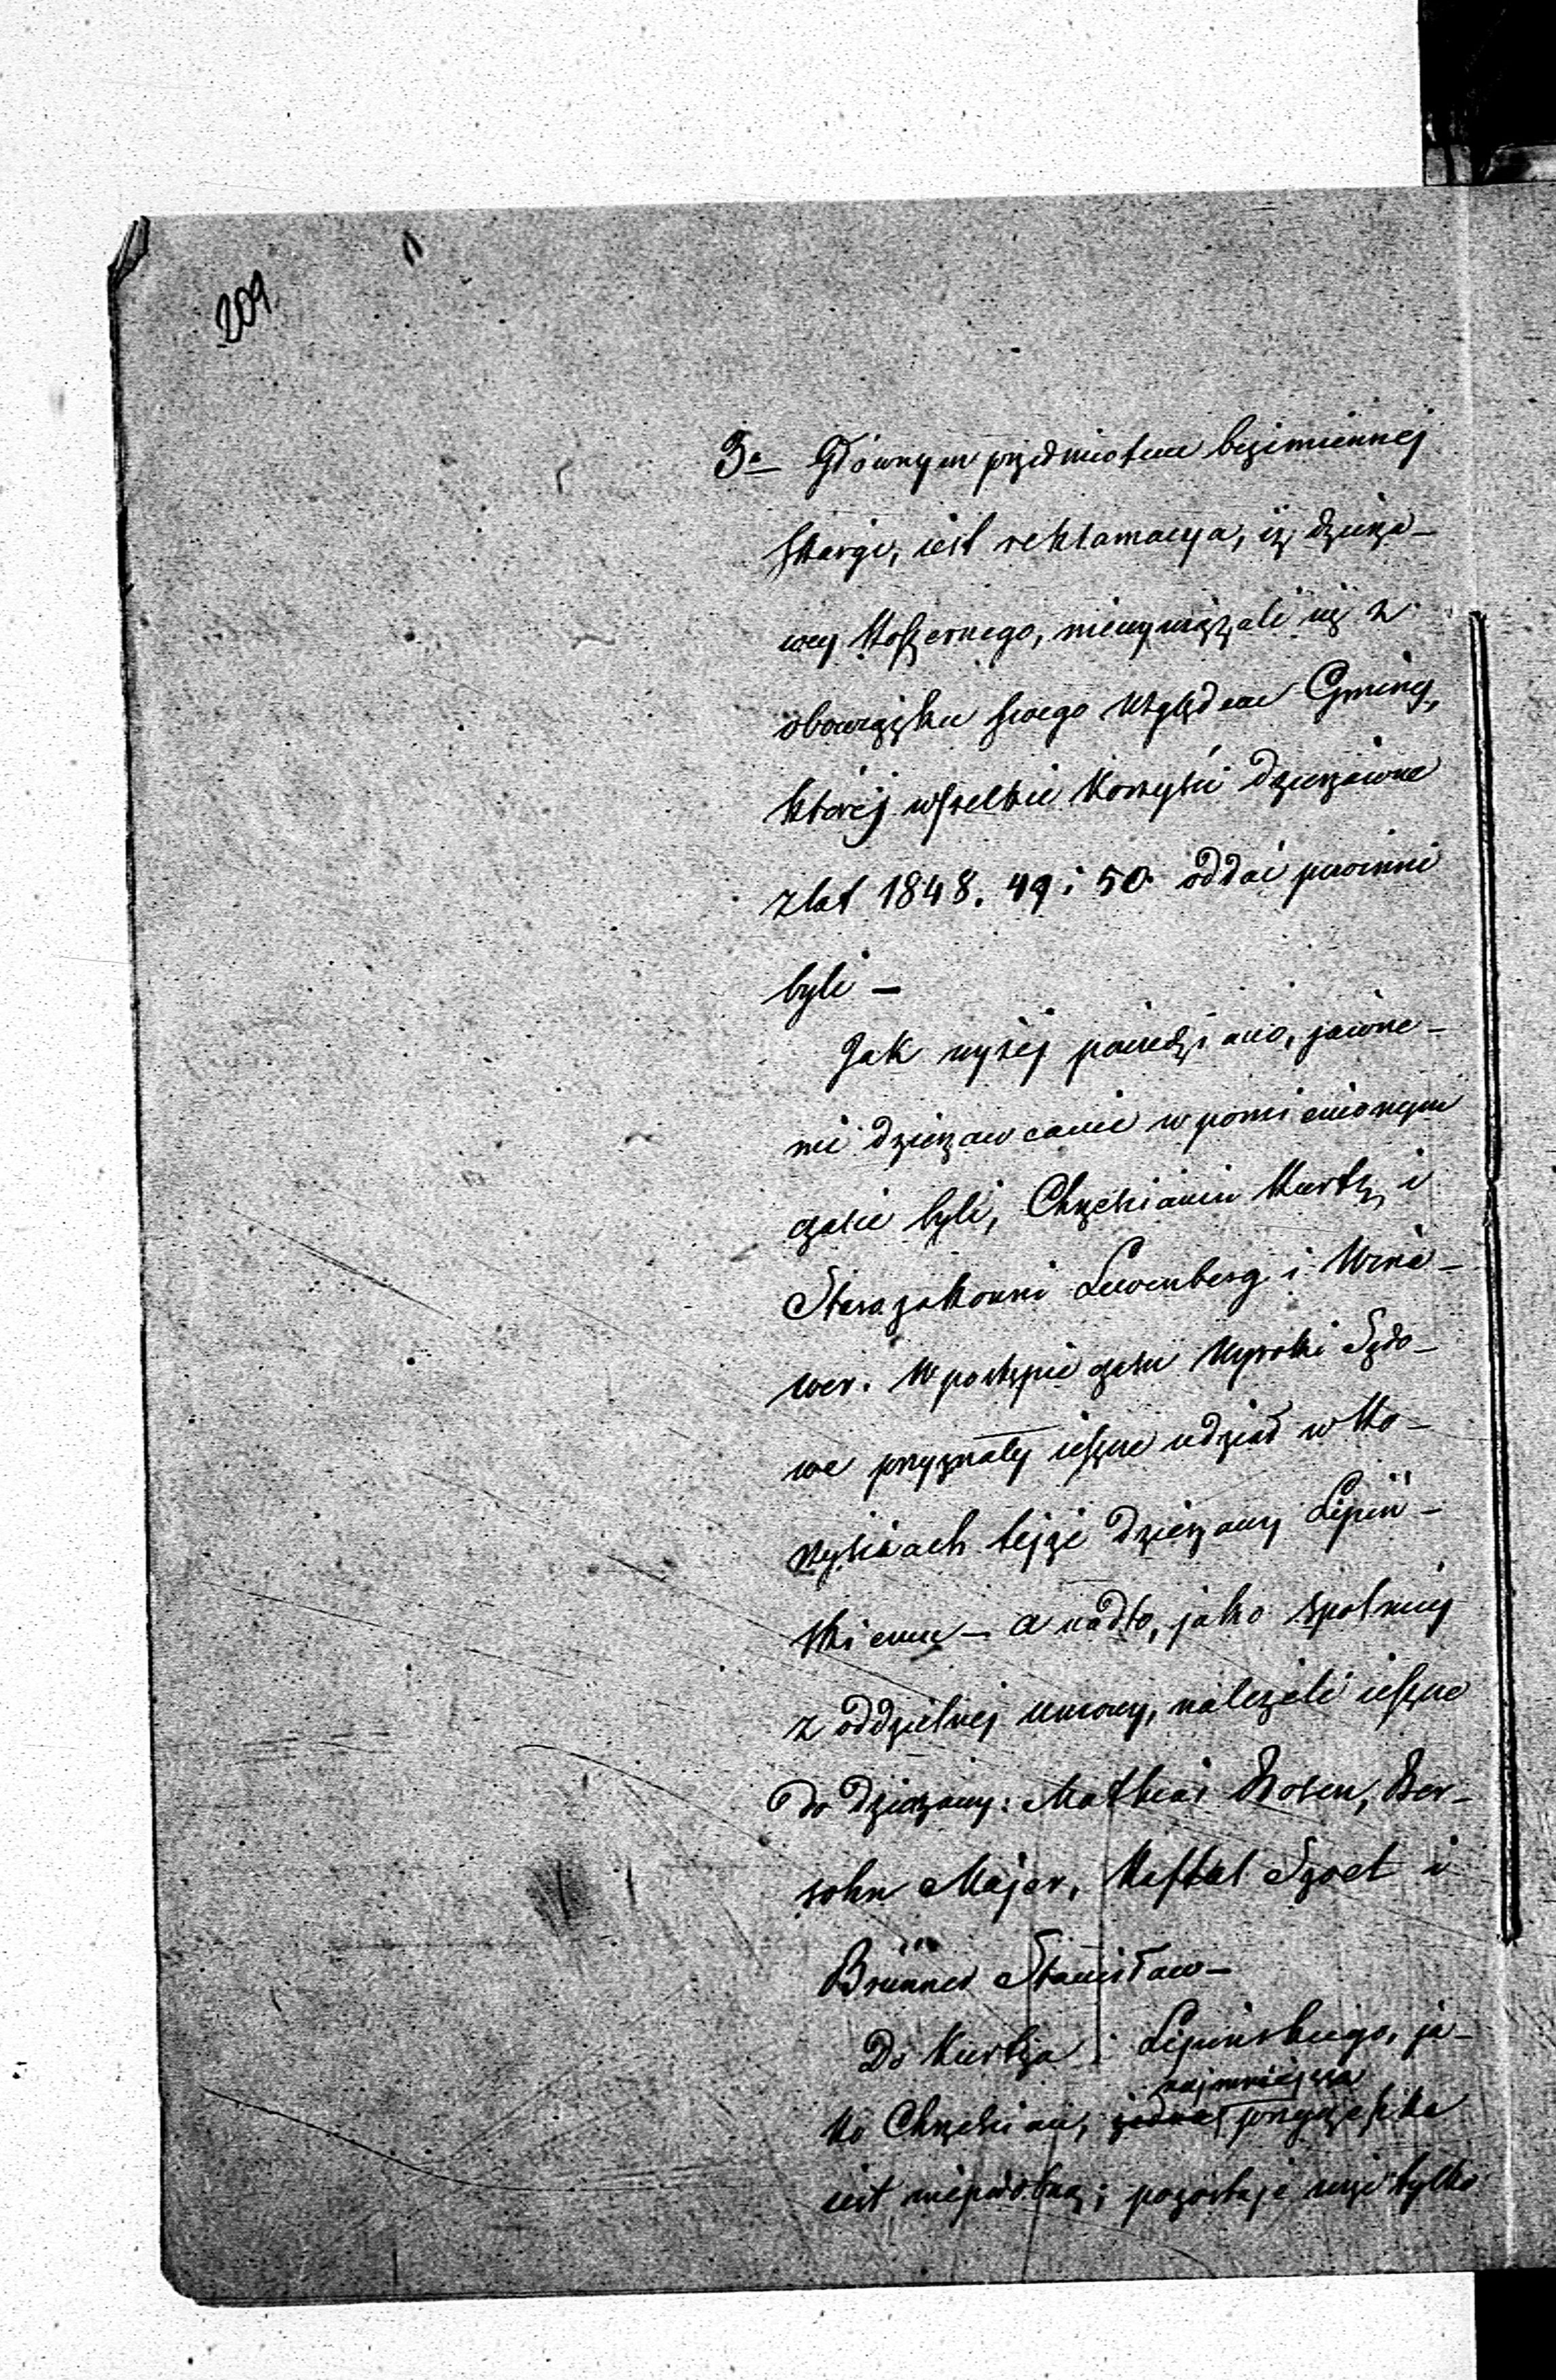 209.
3o Głównym przedmiotem bezimiennej
skargi, iest reklamacya, iż dzierża-
wcy Koszernego, niewywiązali się z
obowiązku swego względem Gminy,
której wszelkie korzyści dzierżawne
z lat 1848. 49 i 50 oddać powinni
byli —
Jak wyżej powiedziano, jawne-
mi dzierzawcami w pomienionym
czasie byli, Chrześcianin Kurtz, i
Starozakonni Lewenberg i Wina-
wer. W postępie czasu Wyroki Sądo-
we przyznały ieszcze udział w Ko-
rzyściach tejże dzierzawy Lipiń-
skiemu — a nadto, jako Spolnicy
z oddzielnej umowy, należeli ieszcze
do dzierzawy: Mathias Rosen, Ber-
sohn Majer, Naftal Szoel i
Brünner Stanisław —
Do Kurtza i Lipińskiego, ja-
najmniejsza
ko Chrześcian, żadna przyczepka
iest niepodobną; pozostaje więc tylko